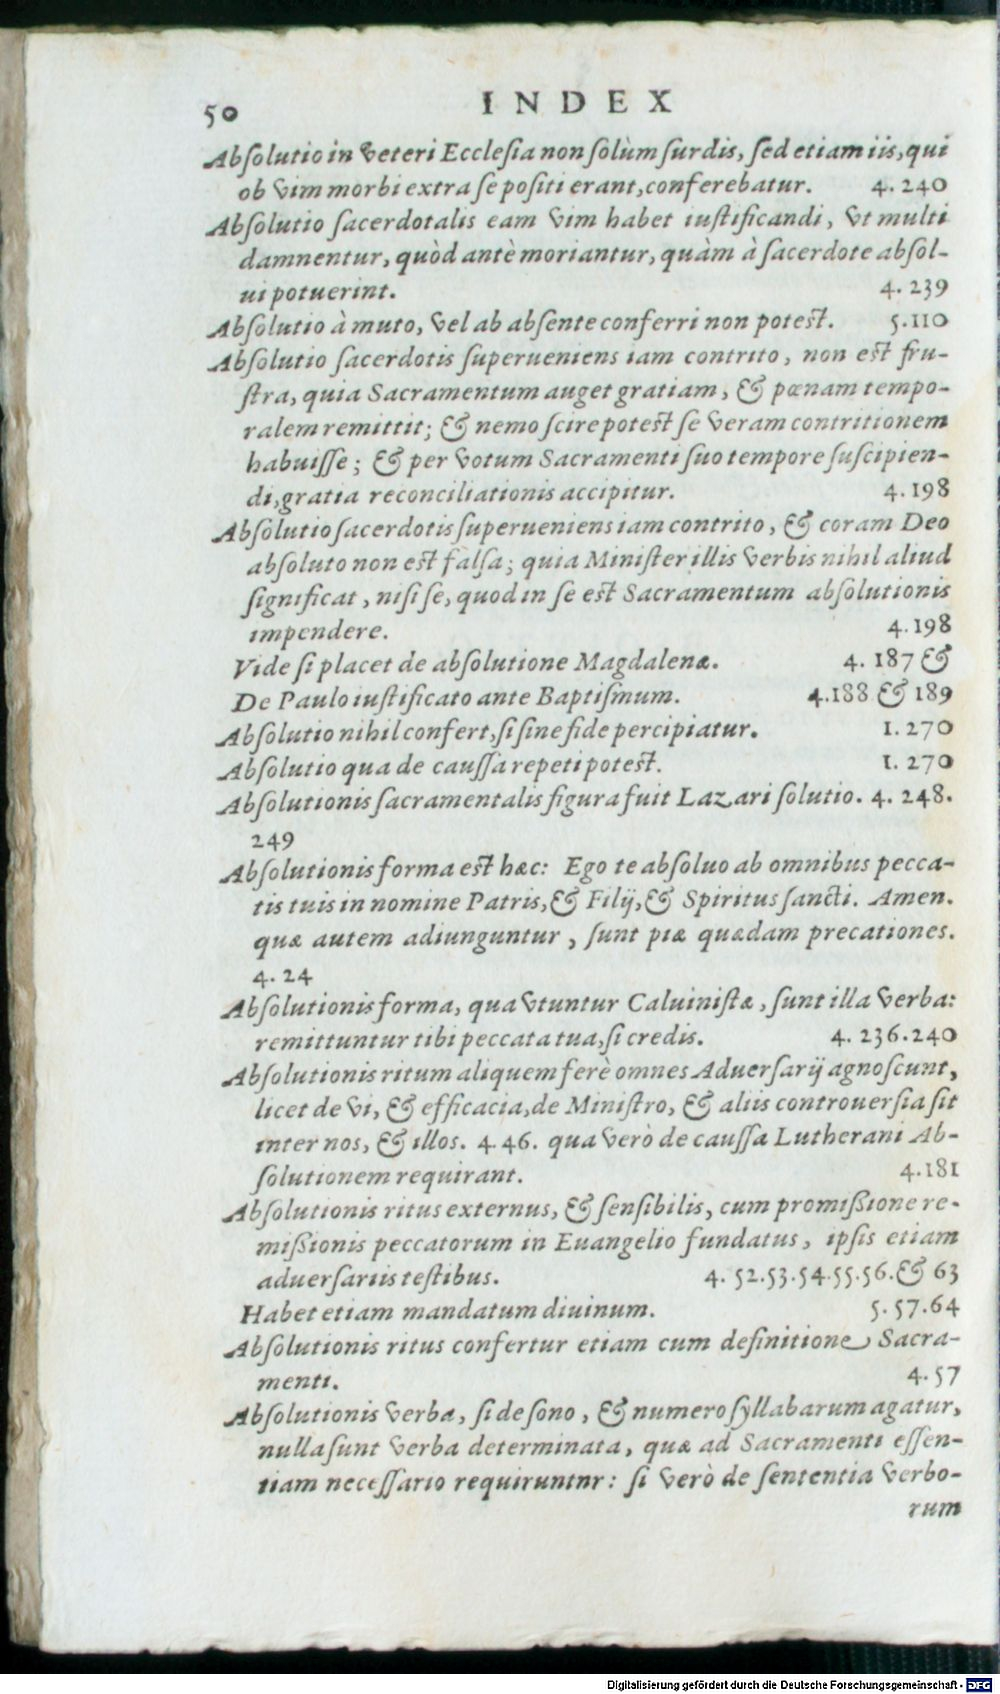 50 INDEX
Absolutio in veteri Ecclesia non solùm surdis, sed etiam iis, qui
ob vim morbi extra se positi erant, conferebatur. 4. 240
Absolutio sacerdotalis eam vim habet iustificandi, vt multi
damnentur, quòd antè moriantur, quàm à sacerdote absol-
ui potuerint. 4. 239
Absolutio à muto, vel ab absente conferri non potest. 5.110
Absolutio sacerdotis superueniens iam contrito, non est fru-
stra, quia Sacramentum auget gratiam, & pœnam tempo-
ralem remittit; & nemo scire potest se veram contritionem
habuisse; & per votum Sacramenti suo tempore suscipien-
di, gratia reconciliationis accipitur. 4.198
Absolutio sacerdotis superueniens iam contrito, & coram Deo
absoluto non est falsa; quia Minister illis verbis nihil aliud
significat, nisi se, quod in se est Sacramentum absolutionis
impendere. 4.198
Vide si placet de absolutione Magdalenæ. 4. 187 &
De Paulo iustificato ante Baptismum. 4.188 & 189
Absolutio nihil confert, si sine fide percipiatur. 1. 270
Absolutio qua de caussa repeti potest. 1. 270
Absolutionis sacramentalis figura fuit Lazari solutio. 4. 248.
249
Absolutionis forma est hæc: Ego te absoluo ab omnibus pecca-
tis tuis in nomine Patris, & Filij, & Spiritus sancti. Amen.
quæ autem adiunguntur, sunt piæ quædam precationes.
4. 24
Absolutionis forma, qua vtuntur Caluinistæ, sunt illa verba:
remittuntur tibi peccata tua, si credis. 4. 236.240
Absolutionis ritum aliquem ferè omnes Aduersarij agnoscunt,
licet de vi, & efficacia, de Ministro, & aliis controuersia sit
inter nos, & illos. 4.46. qua verò de caussa Lutherani Ab-
solutionem requirant. 4.181
Absolutionis ritus externus, & sensibilis, cum promißione re-
mißionis peccatorum in Euangelio fundatus, ipsis etiam
aduersariis testibus. 4. 52.53.54.55.56.& 63
Habet etiam mandatum diuinum. 5.57.64
Absolutionis ritus confertur etiam cum definitione Sacra-
menti. 4.57
Absolutionis verba, si de sono, & numero syllabarum agatur,
nulla sunt verba determinata, quæ ad Sacramenti essen-
tiam necessario requiruntnr: si verò de sententia verbo-
rum
Digitalisierung gefördert durch die Deutsche Forschungsgemeinschaft - DFG